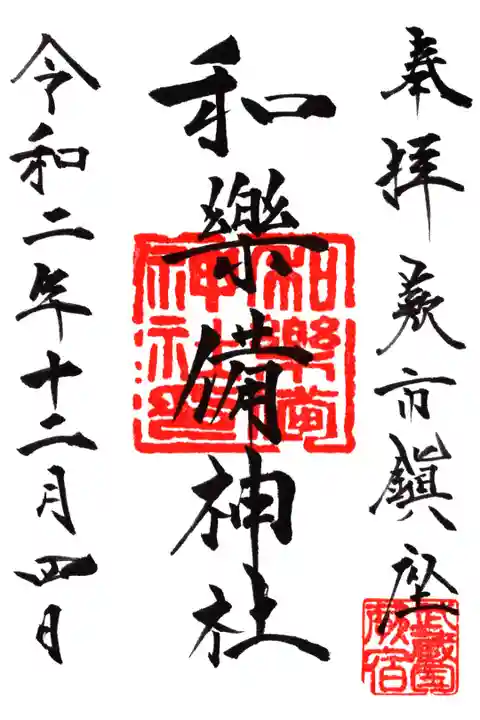 奉拝蕨市鎮座
武蔵國
蕨宿
和樂備神社
和樂備
神社印
令和二年十二月四日